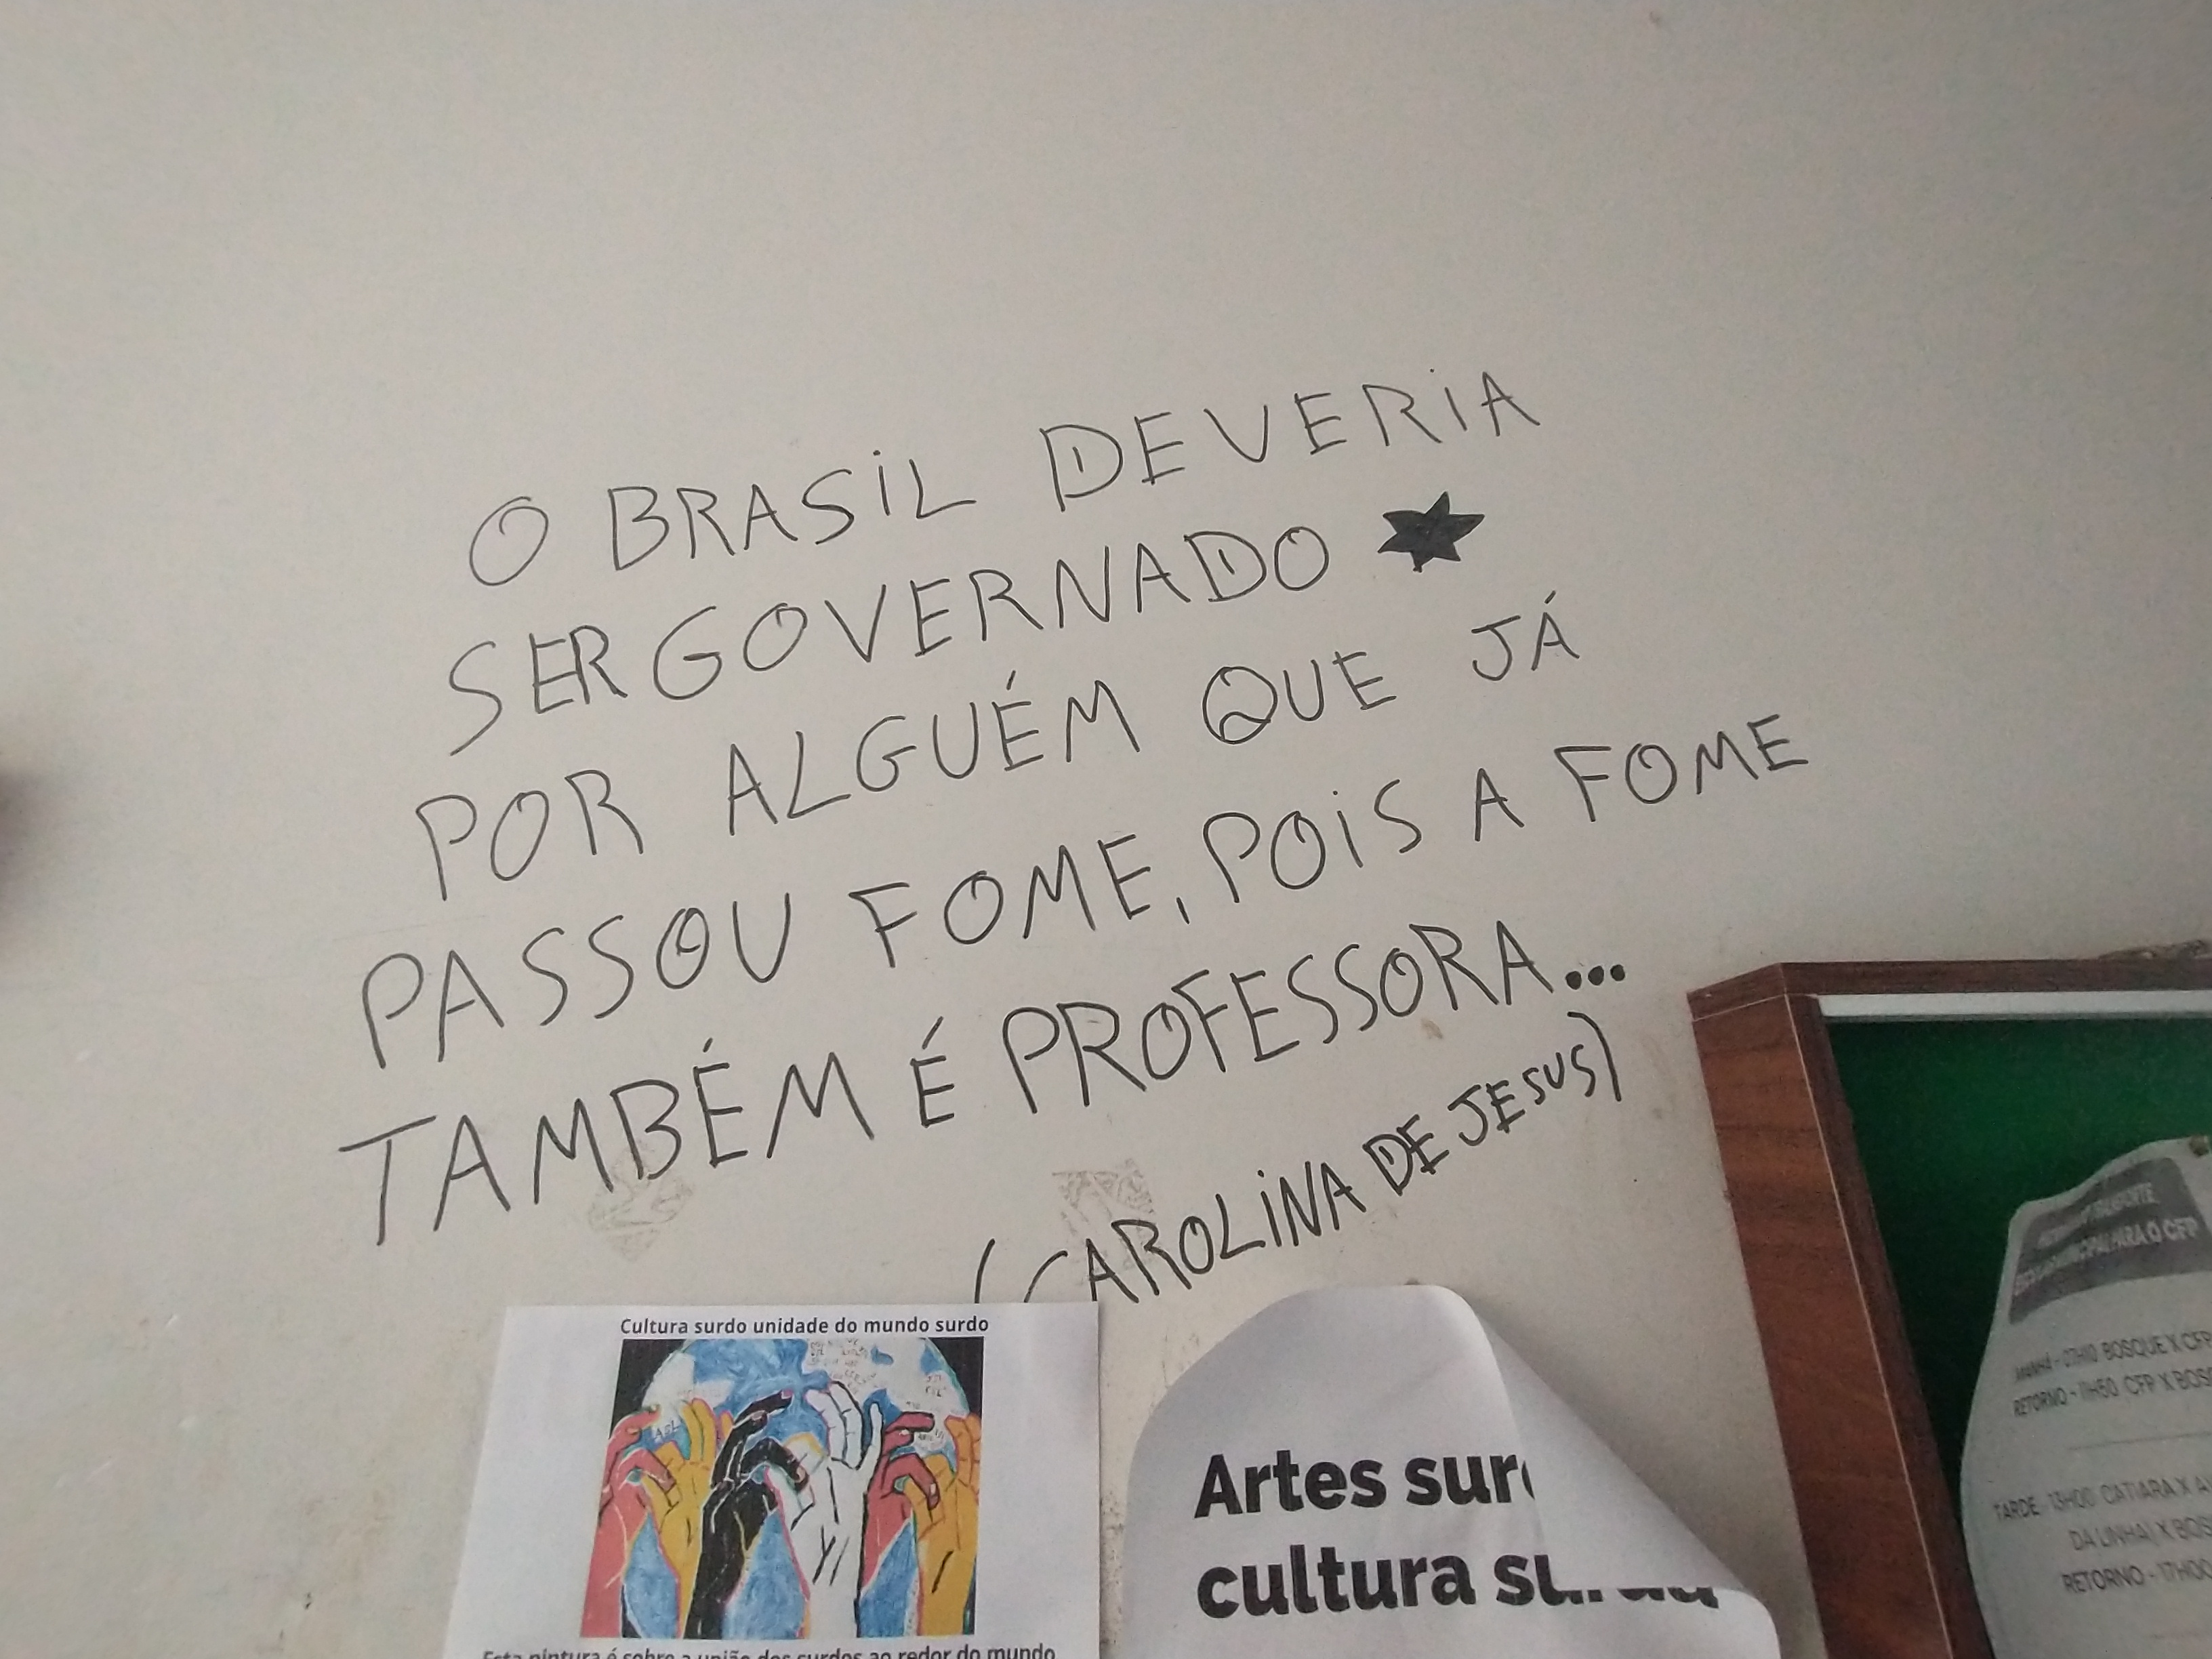 O BRASiL DEVERiA
SER GOVERNADO
POR ALGUÉM QUE JÁ
PASSOU FOME, POiS A FOME
TAMBÉM É PROFESSORA...
(CAROLiNA DE JESUS)
Cultura surdo unidade do mundo surdo
Esta pintura é sobre a união dos surdos ao redor do mundo
Artes sur
cultura su
PARA O CFP
MANHÃ - 07H10 BOSQUE X CFP
RETORNO - 11H50 CFP X BOS
TARDE 13H00 CATIARA X A
DA LINHA) X BOS
RETORNO - 17H00